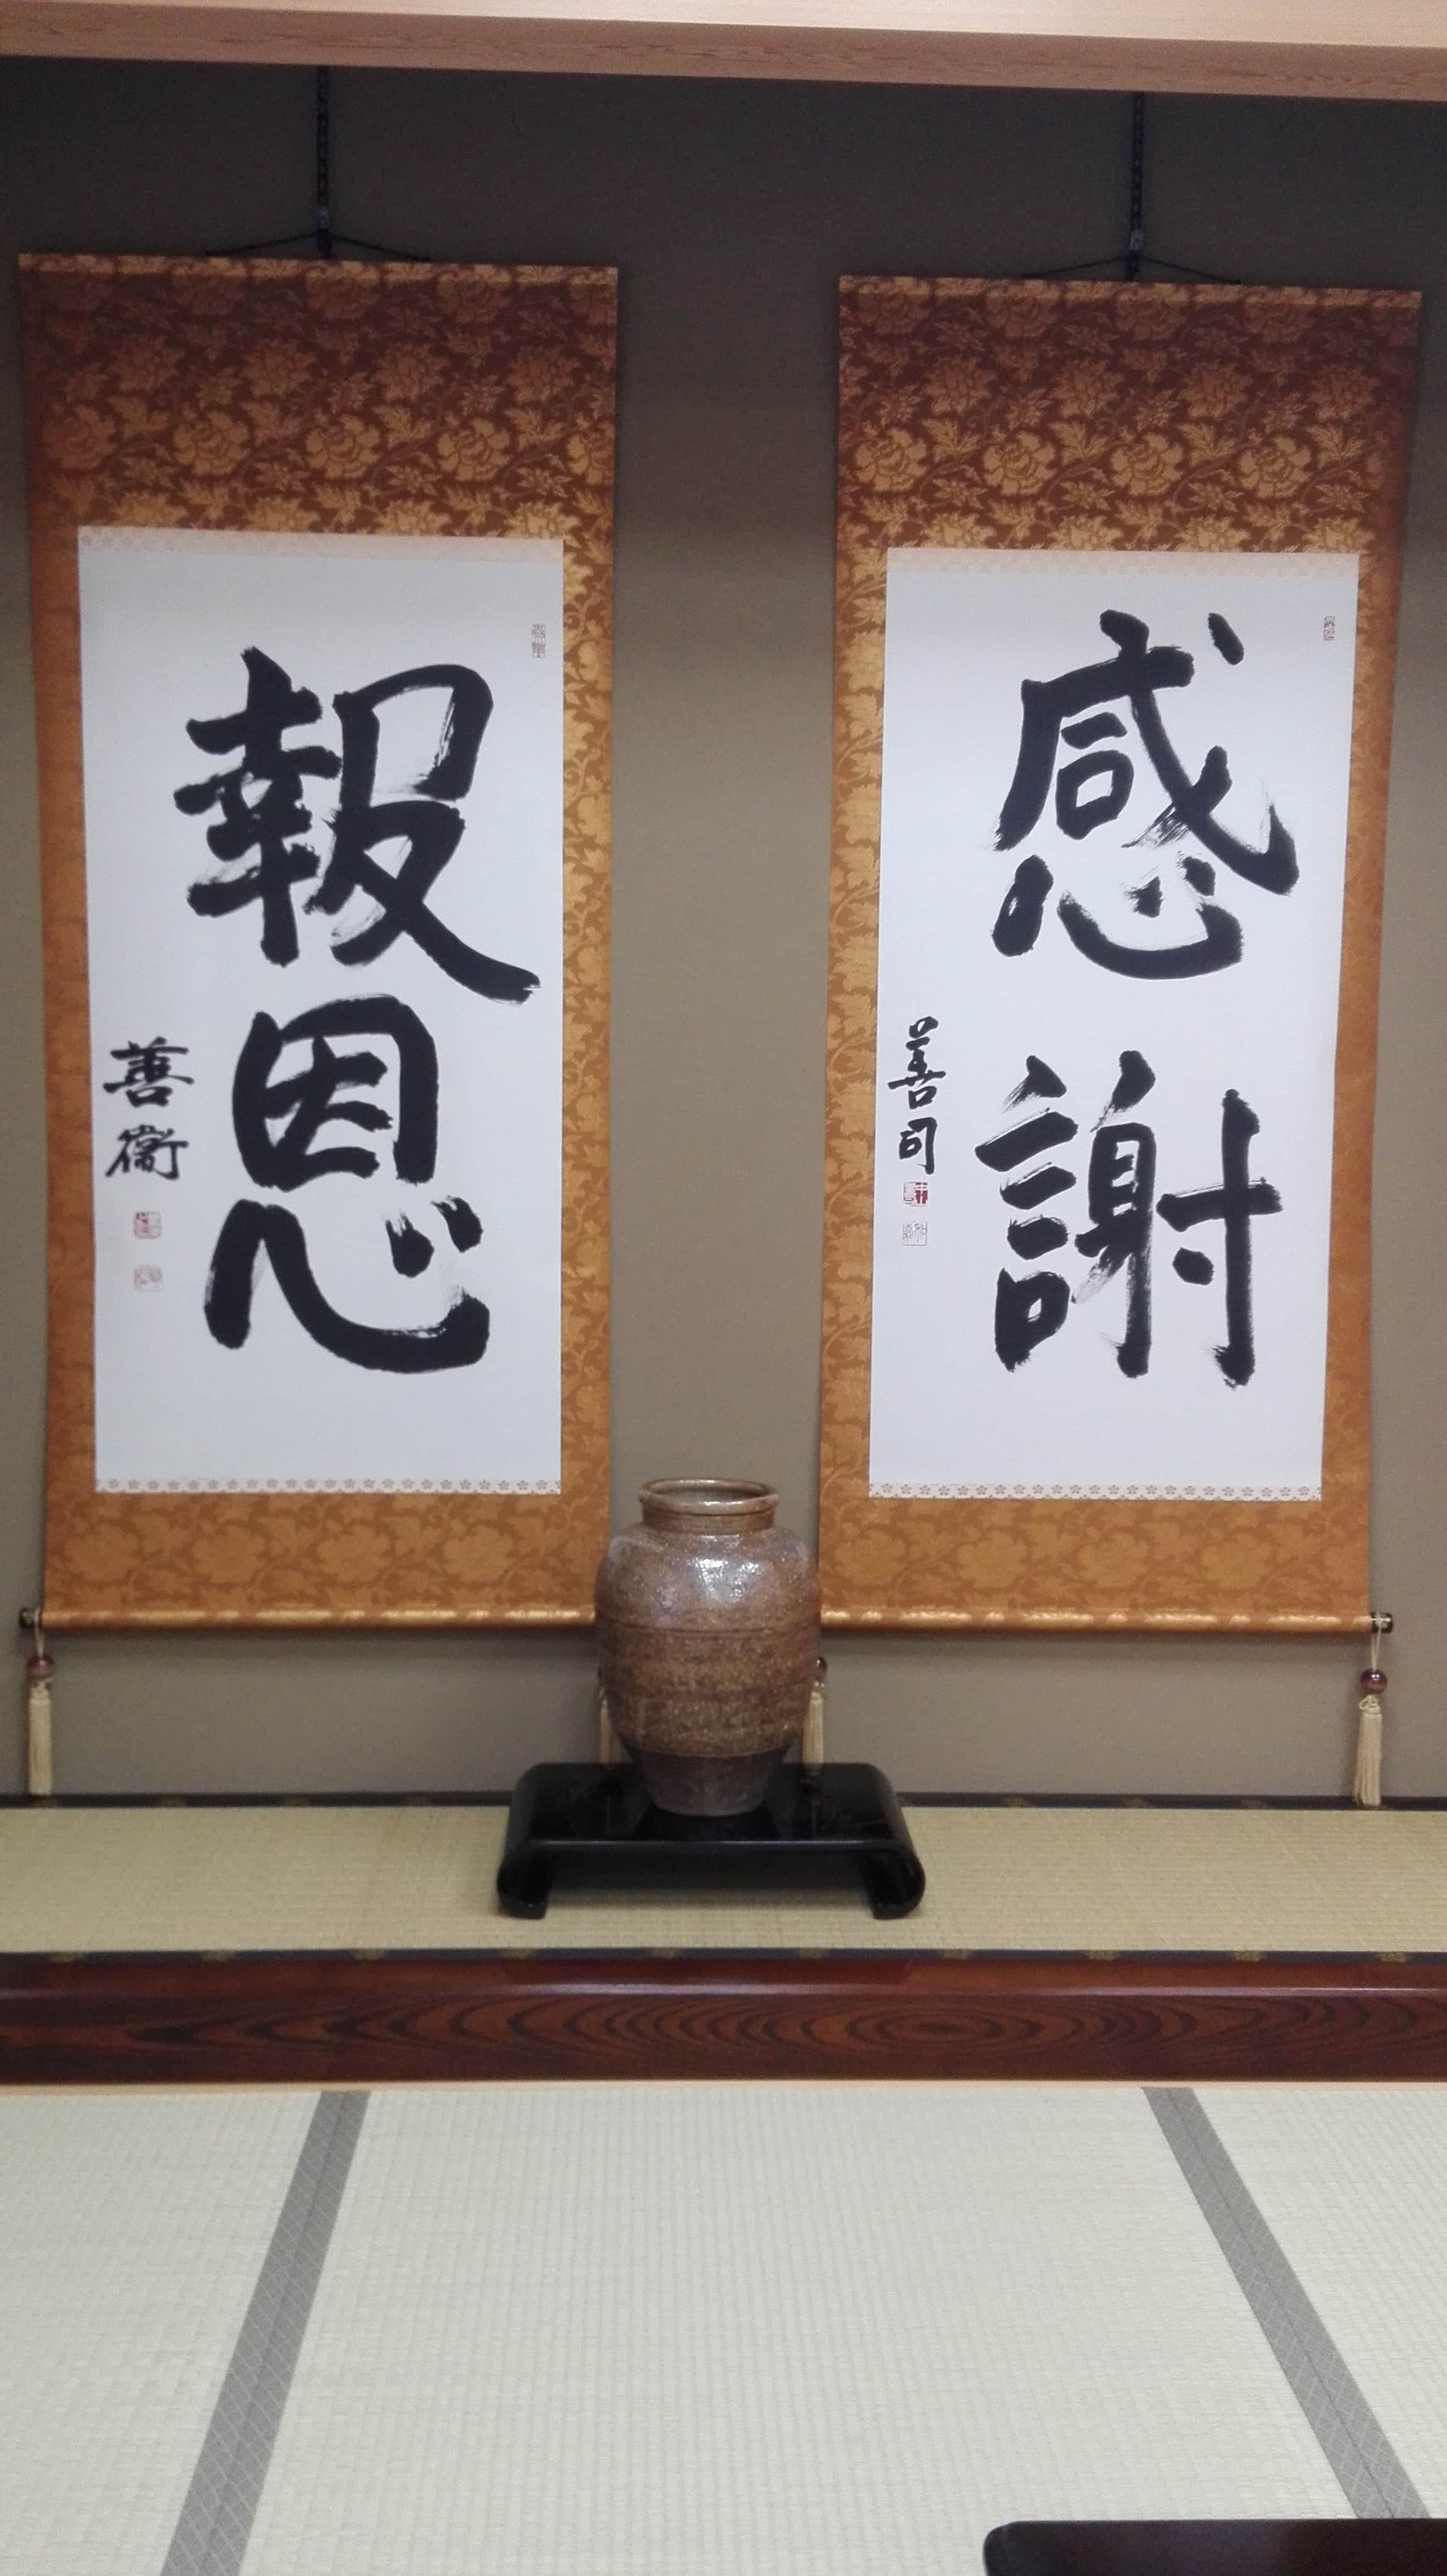 感謝
善司
報恩
善衞